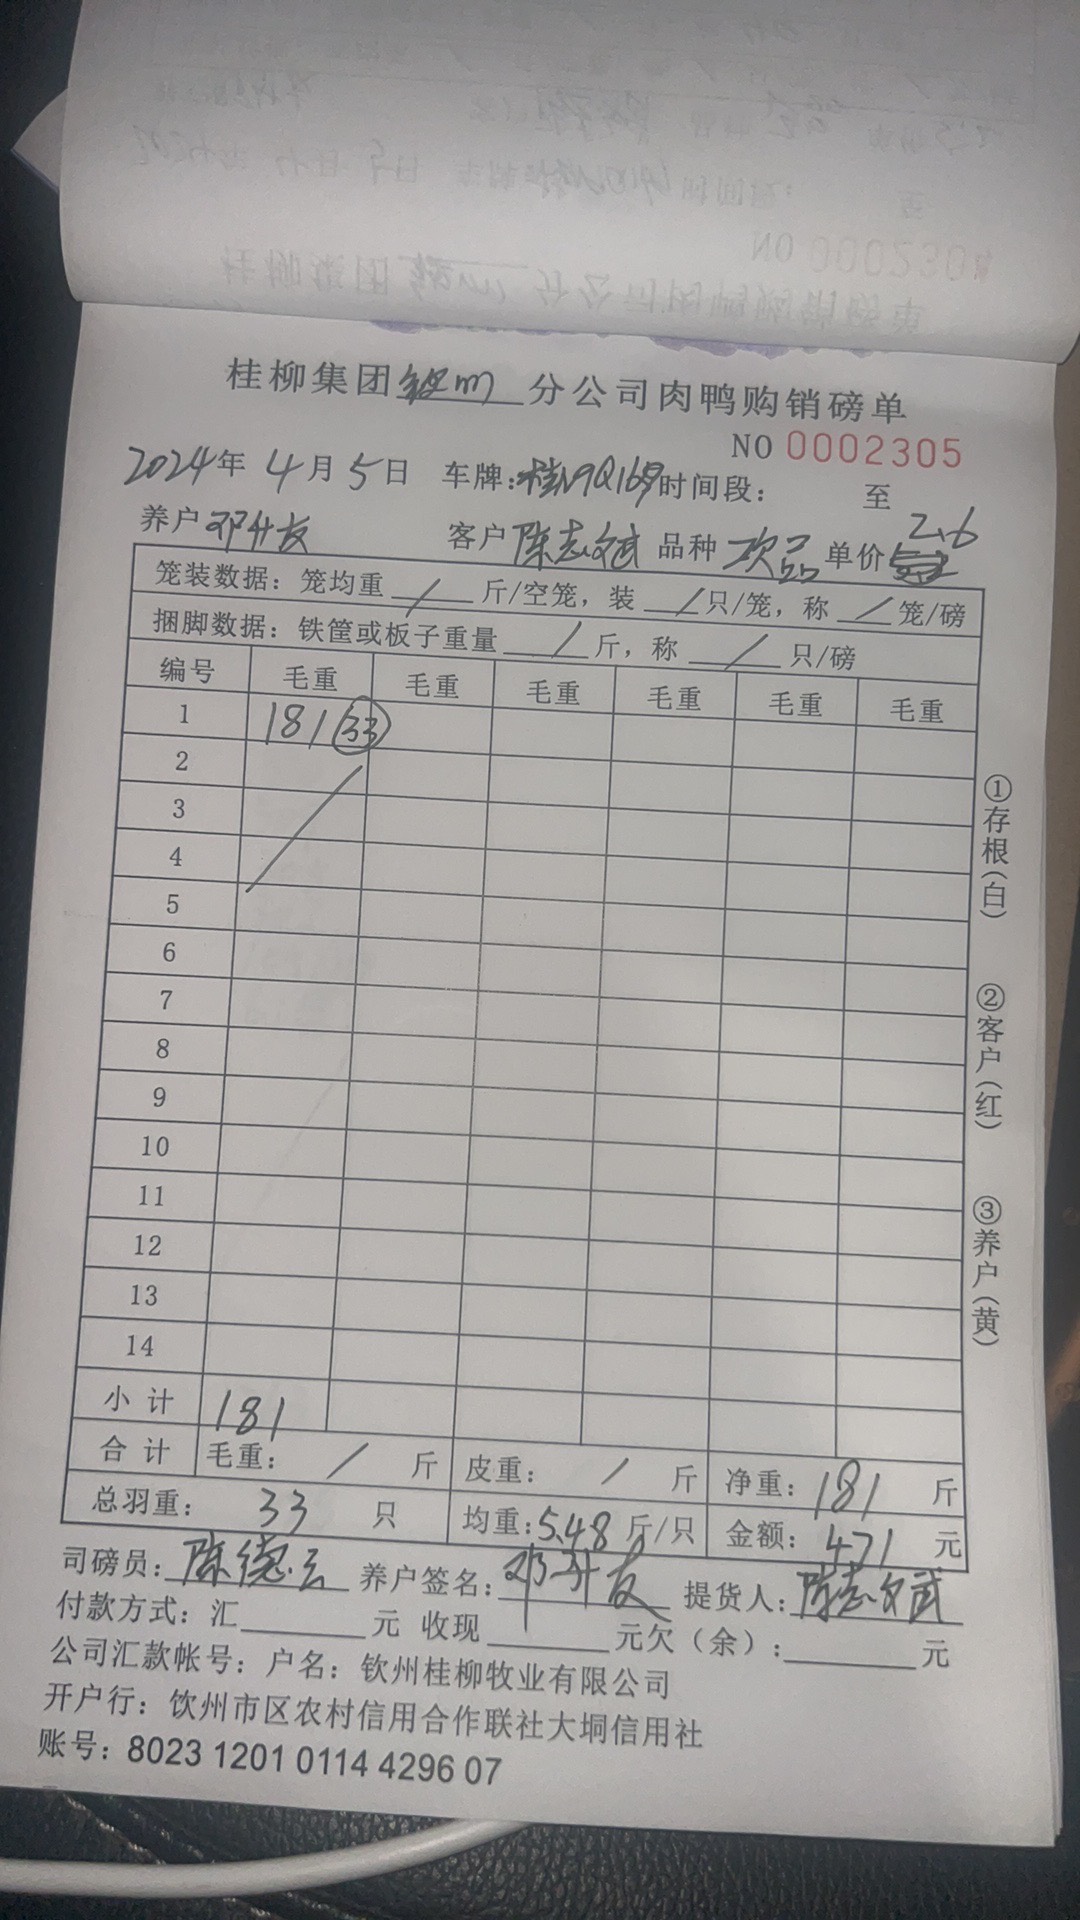 桂柳集团钦州分公司肉鸭购销磅单
NO 0002305
2024年 4月 5日 车牌:桂N9Q169 时间段: 至
养户 邓升友 客户 陈志斌 品种 次品 单价 2.6
笼装数据:笼均重 / 斤/空笼,装 / 只/笼,称 / 笼/磅
捆脚数据:铁筐或板子重量 / 斤,称 / 只/磅
编号 毛重 毛重 毛重 毛重 毛重 毛重
1 181 33
2
3
4
5
6
7
8
9
10
11
12
13
14
小计 181
合计 毛重: / 斤 皮重: / 斤 净重: 181 斤
总羽重: 33 只 均重: 5.48 斤/只 金额: 471 元
司磅员: 陈德云 养户签名: 邓升友 提货人: 陈志斌
付款方式:汇 元 收现 元欠(余): 元
公司汇款帐号:户名:钦州桂柳牧业有限公司
开户行:饮州市区农村信用合作联社大垌信用社
账号:8023 1201 0114 4296 07
①存根(白)
②客户(红)
③养户(黄)